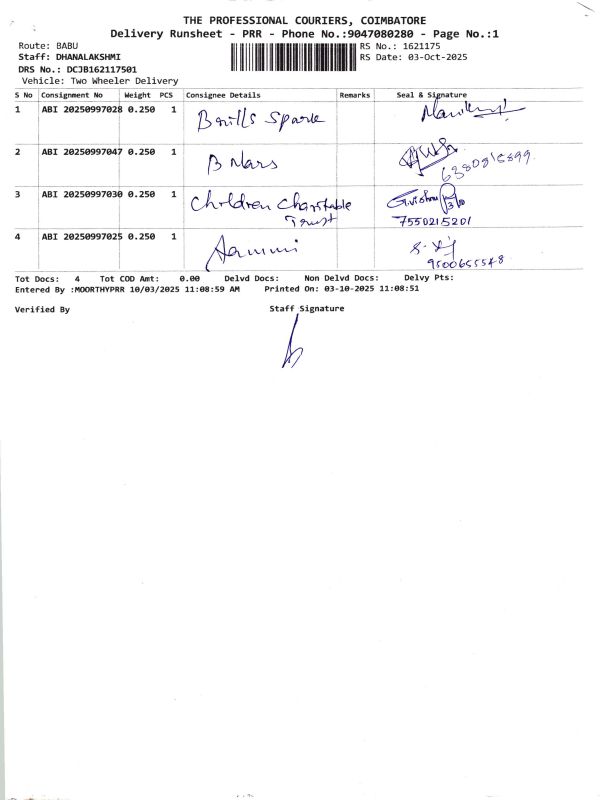 THE PROFESSIONAL COURIERS, COIMBATORE
Delivery Runsheet - PRR - Phone No.:9047080280 - Page No.:1
Route: BABU RS No.: 1621175
Staff: DHANALAKSHMI RS Date: 03-Oct-2025
DRS No.: DCJB162117501
Vehicle: Two Wheeler Delivery
S No Consignment No Weight PCS Consignee Details Remarks Seal & Signature
1 ABI 20250997028 0.250 1
Spark
2 ABI 20250997047 0.250 1
B Mars
3 ABI 20250997030 0.250 1
Children Charitable
Trust
7550215201
4 ABI 20250997025 0.250 1
9500655548
Tot Docs: 4 Tot COD Amt: 0.00 Delvd Docs: Non Delvd Docs: Delvy Pts:
Entered By :MOORTHYPRR 10/03/2025 11:08:59 AM Printed On: 03-10-2025 11:08:51
Verified By Staff Signature